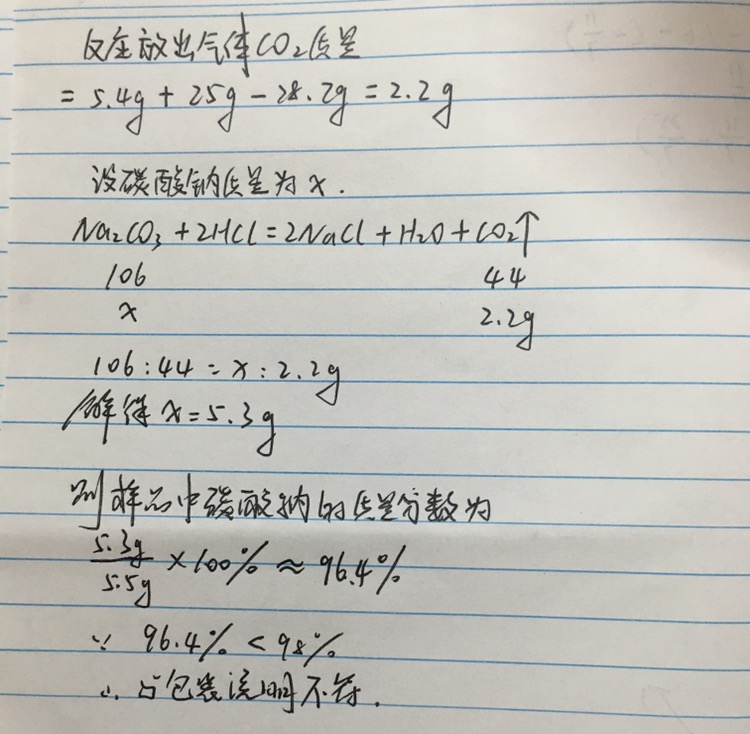 反应放出气体CO₂质量
= 5.4g + 25g - 28.2g = 2.2g
设碳酸钠质量为x.
Na₂CO₃ + 2HCl = 2NaCl + H₂O + CO₂↑
106 44
x 2.2g
106:44 = x:2.2g
解得 x = 5.3g
则样品中碳酸钠的质量分数为
5.3g/5.5g × 100% ≈ 96.4%
∵ 96.4% < 98%
∴ 与包装说明不符.